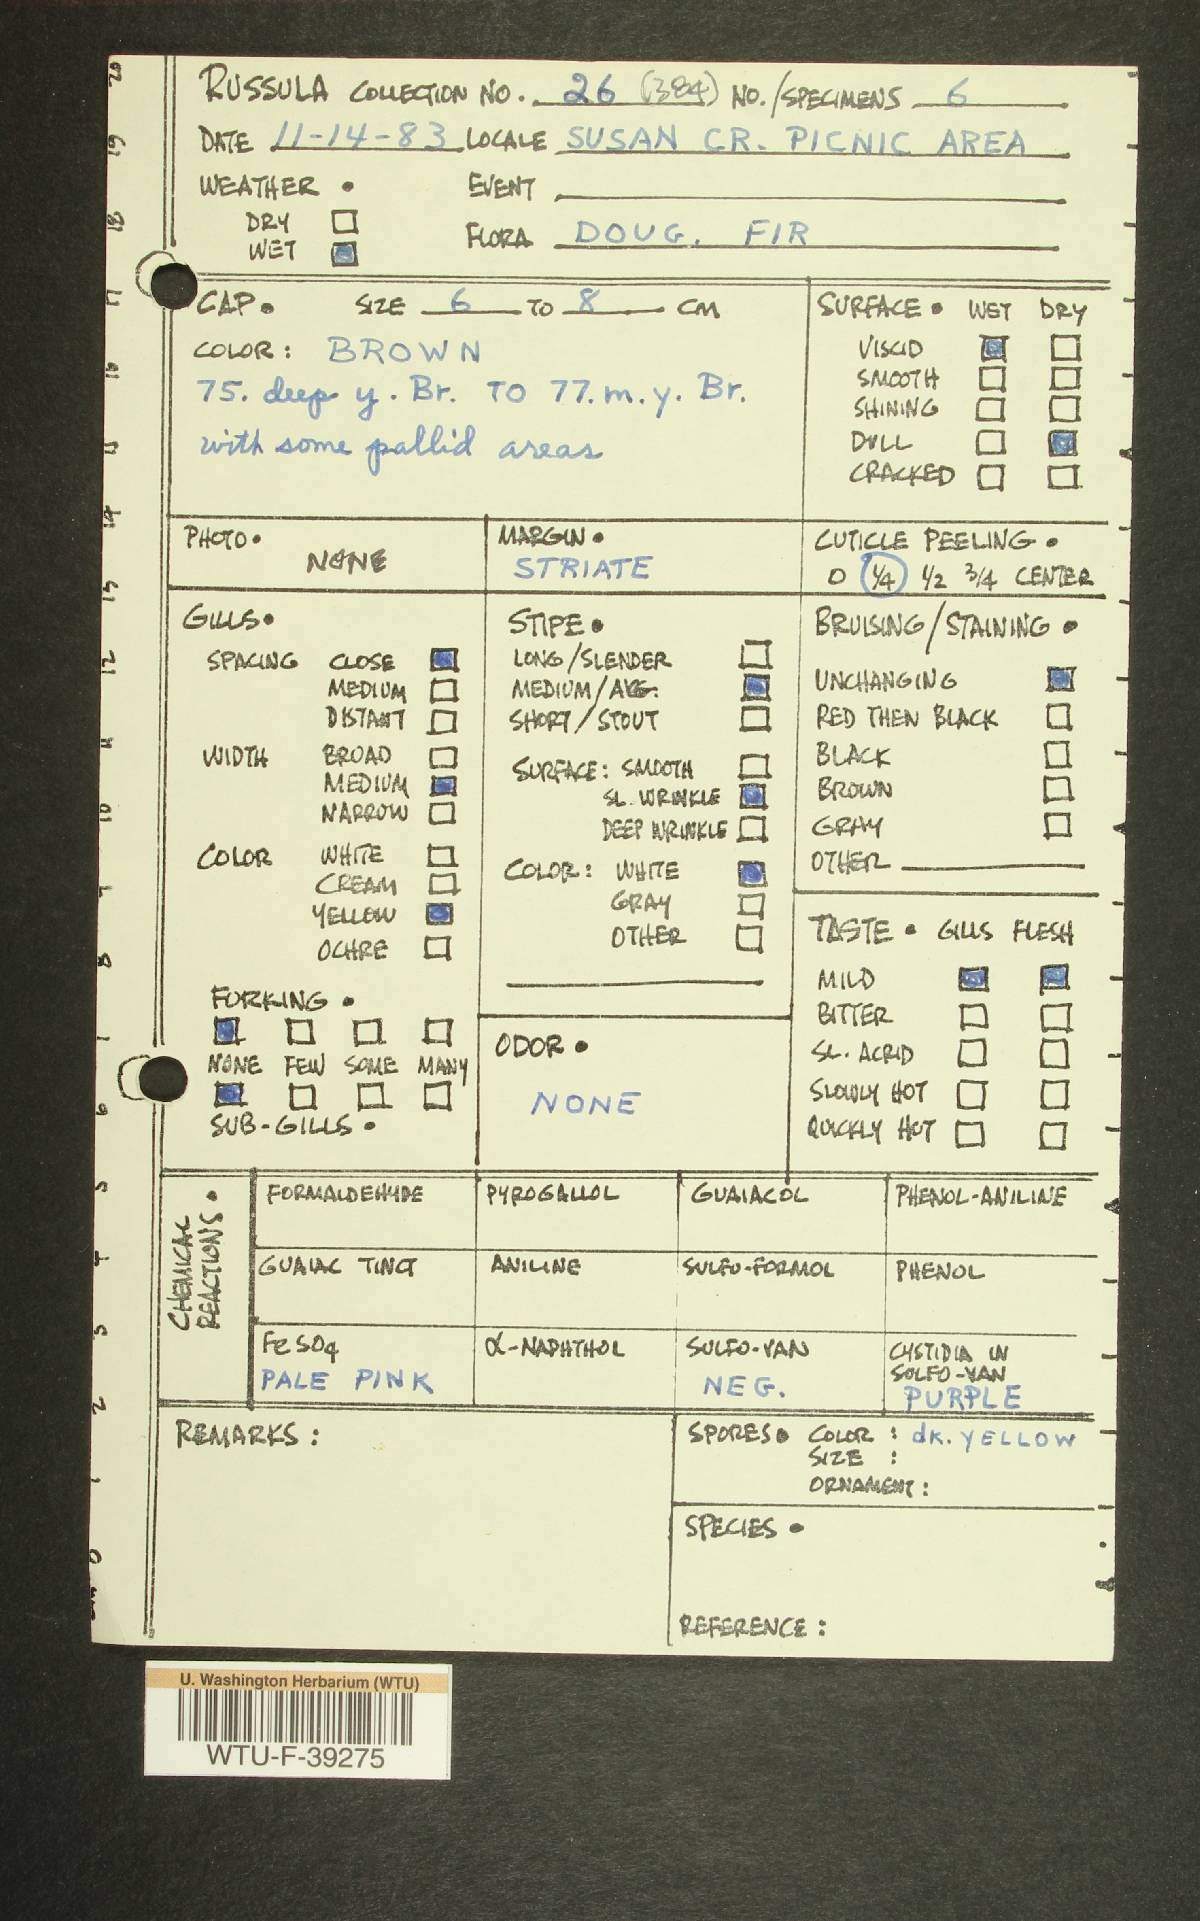 RUSSULA COLLECTION NO. 26 (384) NO./SPECIMENS 6
DATE 11-14-83 LOCALE SUSAN CR. PICNIC AREA
WEATHER • EVENT
DRY
WET
FLORA DOUG. FIR
CAP. SIZE 6 TO 8 CM
COLOR: BROWN
75. deep y. Br. TO 77. m. y. Br.
with some pallid areas
SURFACE • WET DRY
VISCID
SMOOTH
SHINING
DULL
CRACKED
PHOTO •
NONE
MARGIN •
STRIATE
CUTICLE PEELING •
0 1/4 1/2 3/4 CENTER
GILLS •
SPACING CLOSE
MEDIUM
DISTANT
WIDTH BROAD
MEDIUM
NARROW
COLOR WHITE
CREAM
YELLOW
OCHRE
FORKING •
NONE FEW SOME MANY
SUB-GILLS •
STIPE •
LONG/SLENDER
MEDIUM/AVG.
SHORT/STOUT
SURFACE: SMOOTH
SL. WRINKLE
DEEP WRINKLE
COLOR: WHITE
GRAY
OTHER
ODOR •
NONE
BRUISING/STAINING •
UNCHANGING
RED THEN BLACK
BLACK
BROWN
GRAY
OTHER
TASTE • GILLS FLESH
MILD
BITTER
SL. ACRID
SLOWLY HOT
QUICKLY HOT
CHEMICAL
REACTIONS •
FORMALDEHYDE PYROGALLOL GUAIACOL PHENOL-ANILINE
GUAIAC TINCT ANILINE SULFO-FORMOL PHENOL
FeSO4
PALE PINK
α-NAPHTHOL
SULFO-VAN
NEG.
CYSTIDIA IN
SULFO-VAN
PURPLE
REMARKS:
SPORES • COLOR: dk. YELLOW
SIZE :
ORNAMENT:
SPECIES •
REFERENCE:
U. Washington Herbarium (WTU)
WTU-F-39275